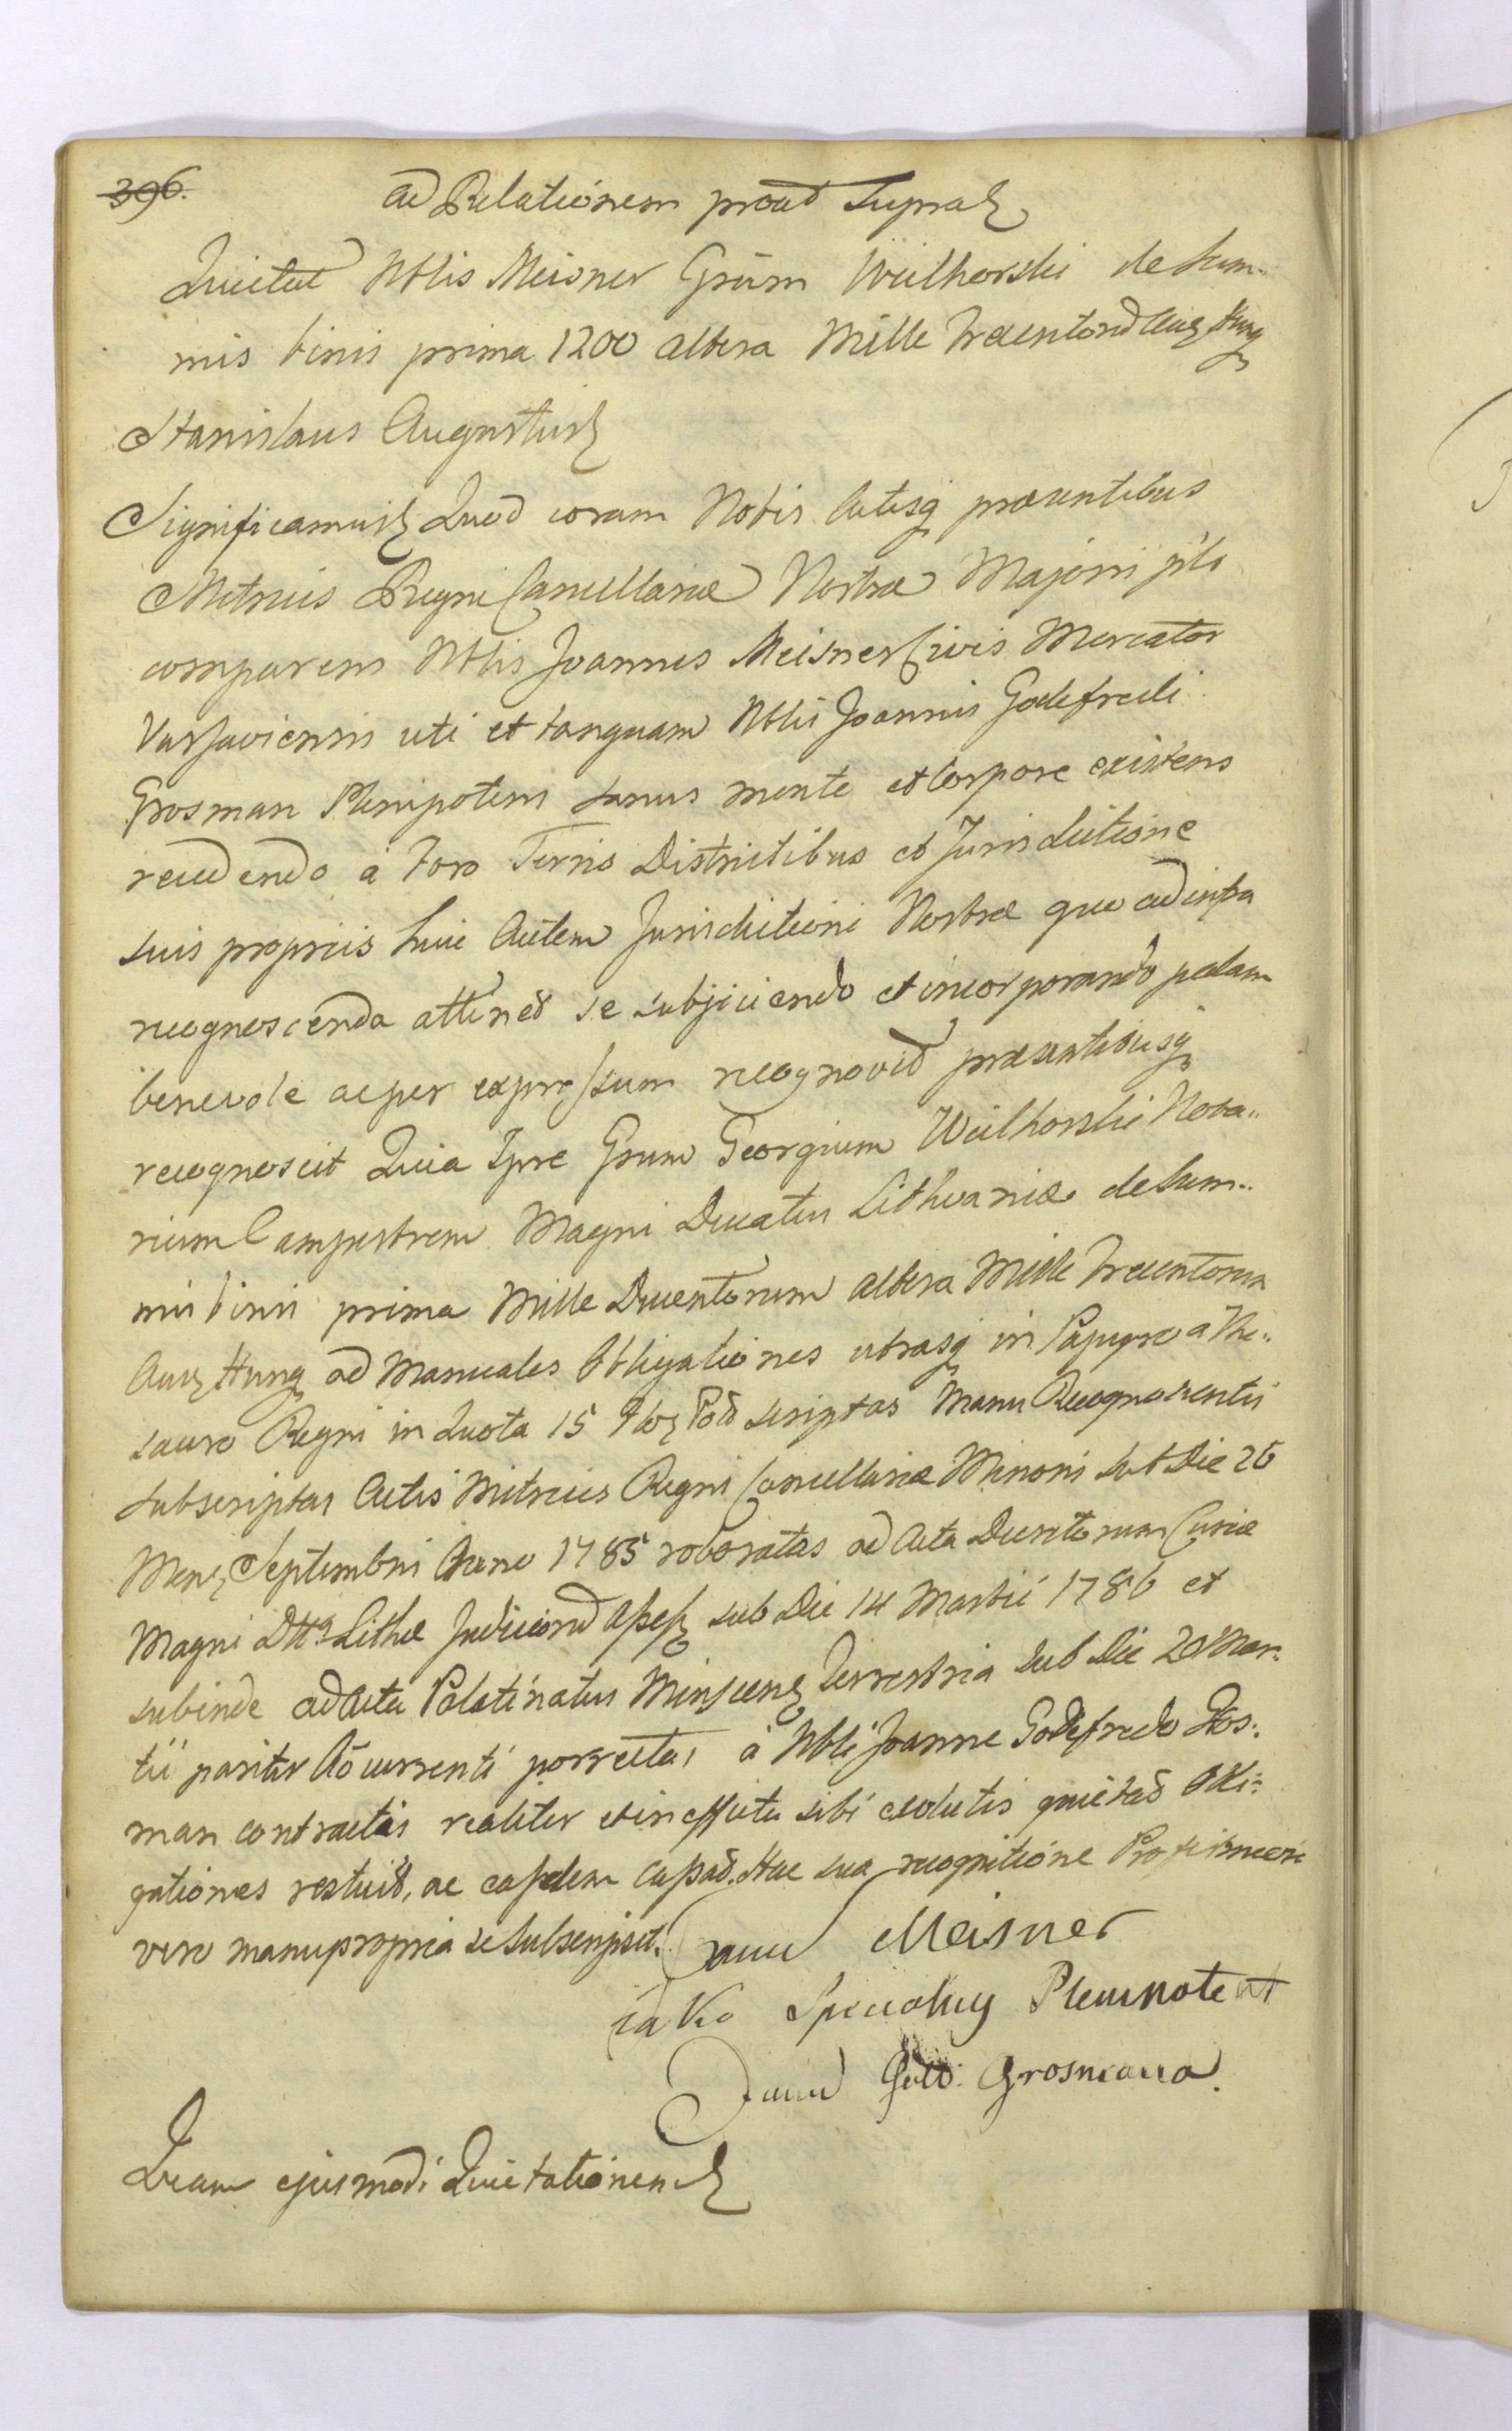 396.
ad Relationem prout Supra
Quietat Nblis Meisner Grūm Wielhorski de Sum..
mis binis prima 1200 altera Mille Trecentorū Aur Hung
Stanislaus Augustus
Significamus Quod coram Nobis Actisq praesentibus
Metrices Regni Cancellariæ Nostræ Majoris prls
comparens Nblis Joannes Meisner Civis Mercator
Varsaviensis uti et tanquam Nblis Joannis Godefredi
Grosman Plenipotens sanus mente et Corpore existens
recedendo à Foro Terris Districtibus et Jurisdictione
suis propriis huic Autem Jurisdictioni Nostræ quo ad infra
recognoscenda attinet se subjiciendo et incorporando palam
benevole ac per expressum recognovit praesentibusq
recognoscit Quia Ipse Grum Georgium Wielhorski Nota..
rium Campestrem Magni Ducatus Lithvaniæ de Sum..
mis binis prima Mille Ducentorum altera Mille Trecentorum
Aur Hung ad Manuales Obligationes utrasq in Papyro a The..
sauro Regni in Quota 15 Pol scriptas Manu Recognoscentis
subscriptas Actis Metrices Regni Cancellariæ Minoris sub Die 26
Mens Septembris Anno 1785 roboratas ad Acta Decretorum Curiæ
Magni Dttq Lithæ Judiciorū Assess sub Die 14 Martii 1786 et
subinde ad Acta Palatinatus Minscens Terrestria sub Die 20 Mar:
tii pariter Aō currenti porrectas à Nbli Joanne Godefredo Gros:
man contractas realiter et in effectu sibi exolutis quietat Obli:
gationes restuit, ac easdem cassat. Hac sua recognitione
vero manu propria se Subscripsit. Jann Meisner
iako Specialny Plenipotent
Jana Gott: Grosmana.
Quam ejusmodi Quietationem